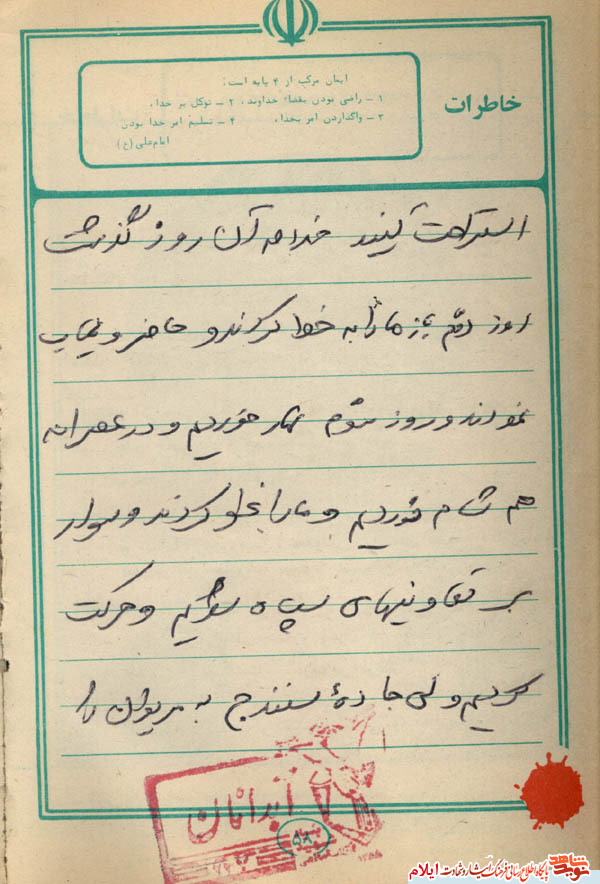 خاطرات
ایمان مرکب از ۴ پایه است:
۱ ـ راضی بودن بقضاء خداوند، ۲ ـ توکل بر خدا،
۳ ـ واگذاردن امر بخدا، ۴ ـ تسلیم امر خدا بودن
امام علی (ع)
استراحت کنید خدا آن روز گذشت
روز دوم باز ما را به خط کردند و حاضر و غیاب
نمودند و روز سوم نهار خوردیم و در عصرانه
هم شام خوردیم و ما را کردند و سوار
بر تعاونیهای سپاه شدیم و حرکت
کردیم ولی جاده سنندج به مریوان را
آبدانان
۵۸
نوید شاهد
پایگاه اطلاع رسانی فرهنگ ایثار و شهادت ایلام